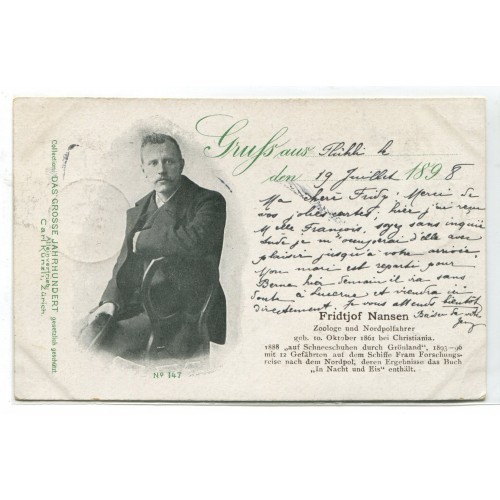 Collection: DAS GROSSE JAHRHUNDERT gesetzlich geschützt
Alleinvertrieb:
Carl Künzli, Zürich.
Gruss aus
den 19 Juillet 1898
Ma chère Fridy. Merci de
vos jolies cartes, hier j'ai reçue
Melle François, soyez sans inquié
tude je m'occuperai d'elle avec
plaisir jusqu'à votre arrivée
Mon mari est reparti pour
Berne hier demain il ira sans
doute à Lucerne et viendra ici
directement. Je vous attends bientôt
Fridtjof Nansen
Baiser de votre
Zoologe und Nordpolfahrer
geb. 10. Oktober 1861 bei Christiania.
1888 „auf Schneeschuhen durch Grönland", 1893-96
mit 12 Gefährten auf dem Schiffe Fram Forschungs-
reise nach dem Nordpol, deren Ergebnisse das Buch
„In Nacht und Eis" enthält.
No 147